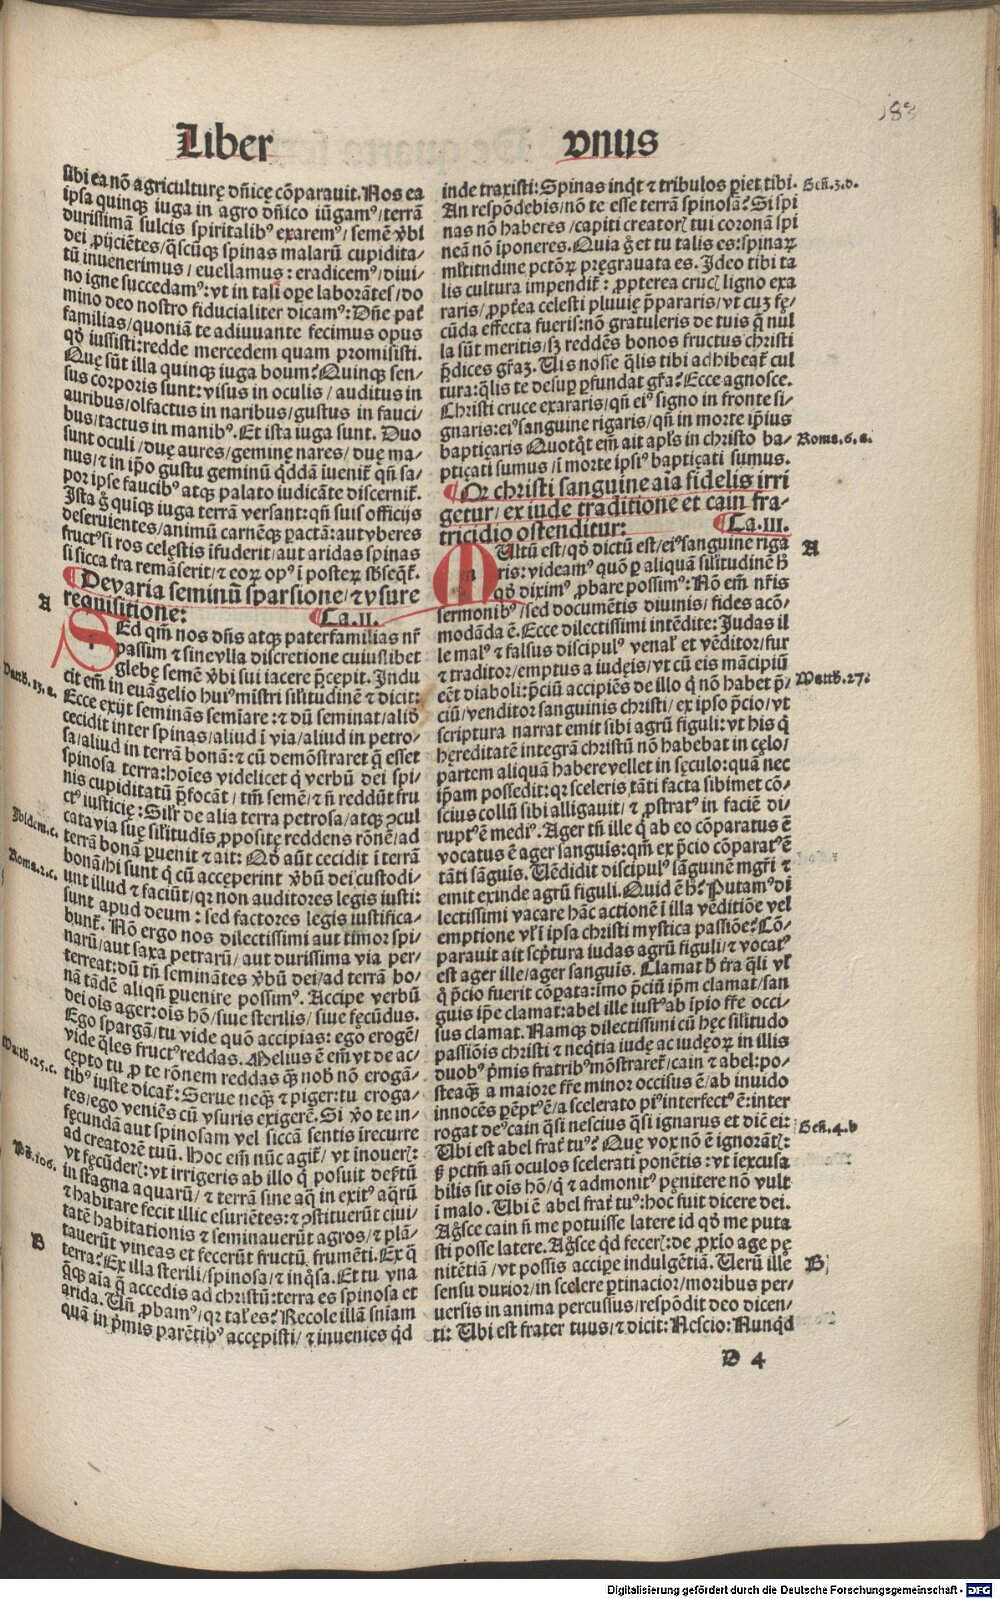 183
Liber vnus
sibi ea nõ agriculturę dñicę cõparauit. Nos ea
ipsa quinqꝫ iuga in agro dñico iũgamꝰ/terrã
durissimã sulcis spiritalibꝰ exaremꝰ/semẽ ꝟbi
dei ꝓijciẽtes/q̃scũqꝫ spinas malarũ cupidita-
tũ inuenerimus/euellamus: eradicemꝰ/diui/
no igne succedamꝰ: vt in tali oꝑe laborãtes/do
mino deo nostro fiducialiter dicamꝰ: Dñe pař
familias/quoniã te adiuuante fecimus opus
qď iussisti: redde mercedem quam promisisti.
Quę sũt illa quinqꝫ iuga boum? Quinqꝫ sen-
sus corporis sunt: visus in oculis/auditus in
auribus/olfactus in naribus/gustus in fauci/
bus/tactus in manibꝰ. Et ista iuga sunt. Duo
sunt oculi/duę aures/geminę nares/duę ma-
nus/⁊ in ip̃o gustu geminũ q̃ddã iuenit̃ qñ sa-
por ipse faucibꝰ atqꝫ palato iudicãte discernit̃.
Ista g̊ quiqꝫ iuga terrã versant: qñ suis officijs
deseruientes/animũ carnẽqꝫ ꝑactã: aut vberes
fructꝰ si ros celęstis ifuderit/aut aridas spinas
si sicca t̃ra remãserit/⁊ eoꝝ opꝰ i posteꝝ sb̃seqt̃.
De varia seminũ sparsione/⁊ vsure
requisitione: Ca. II.
A
SEd qm̃ nos dñs atqꝫ paterfamilias nr̃
passim ⁊ sine vlla discretione cuiuslibet
glebę semẽ ꝟbi sui iacere p̃cepit. Indu
cit em̃ in euãgelio huiꝰmistri silitudinẽ ⁊ dicit:
Matth. 13. a.
Ecce exijt seminãs semiare: ⁊ dũ seminat/aliď
cecidit inter spinas/aliud i via/aliud in petro-
sa/aliud in terrã bonã: ⁊ cũ demõstraret q̃ esset
spinosa terra: hoies videlicet q̃ verbũ dei spi/
nis cupiditatũ p̃focãt/tm̃ semẽ/⁊ ñ reddũt fru
ctꝰ iusticię: Silr̃ de alia terra petrosa/atqꝫ ꝓcul
cata via suę silitudĩs ꝓpositę reddens rõnẽ/ad
Ibidem. c.
terrã bonã ꝑuenit ⁊ ait: Qď aũt cecidit i terrã
bonã/hi sunt q̃ cũ acceperint ꝟbũ dei custodi/
Roma. 2. c.
unt illud ⁊ faciũt/qꝛ non auditores legis iusti:
sunt apud deum: sed factores legis iustifica/
bunt̃. Nõ ergo nos dilectissimi aut timor spi/
narũ/aut saxa petrarũ/aut durissima via per-
terreat: dũ tñ seminãtes ꝟbũ dei/ad terrã bo/
nã tãdẽ aliqñ ꝑuenire possimꝰ. Accipe verbũ
dei ois ager: ois hõ/siue sterilis/siue fęcũdus.
Ego spargã/tu vide quõ accipias: ego erogẽ/
vide q̃les fructꝰ reddas. Melius ẽ em̃ vt de ac/
Matth. 25. c.
cepto tu ꝓ te rõnem reddas q̃ꝫ nob̃ nõ erogã/
tibꝰ iuste dicat̃: Serue neq̃ꝫ ⁊ piger: tu eroga-
res/ego veniẽs cũ vsuris exigerẽ. Si ꝟo te in-
fęcundã aut spinosam vel siccã sentis irecurre
ad creatorẽ tuũ. Hoc em̃ nũc agit̃/vt inouerꝭ:
Ps. 106.
vt fęcũderꝭ: vt irrigeris ab illo q̃ posuit deṡtũ
in stagna aquarũ/⁊ terrã sine aq̃ in exitꝰ aq̃rũ
⁊ habitare fecit illic esuriẽtes: ⁊ ꝓstituerũt ciui/
tatẽ habitationis ⁊ seminauerũt agros/⁊ plã-
tauerũt vineas et fecerũt fructũ frumẽti. Ex q̃
B
terra? Ex illa sterili/spinosa/⁊ inq̃sa. Et tu vna
q̃q̃ꝫ aia q̃ accedis ad christũ: terra es spinosa et
arida. Vñ ꝓbamꝰ/qꝛ tal̃ es? Recole illã sniam
quã in p̃mis parẽtibꝰ accępisti/⁊ inuenies q̃d
inde traxisti: Spinas inq̃t ⁊ tribulos ꝑiet tibi.
Geñ. 3. d.
An respõdebis/nõ te esse terrã spinosã? Si spi
nas nõ haberes/capiti creatorꝭ tui coronã spi
neã nõ iponeres. Quia g̊ et tu talis es: spinaꝝ
mltitudine pctõꝝ pręgrauata es. Ideo tibi ta
lis cultura impendit̃: ꝓpterea crucꝭ ligno exa
raris/ꝓpt̃ea celesti pluuię p̃pararis/vt cuꝫ fę/
cũda effecta fueris: nõ gratuleris de tuis q̃ nul
la sũt meritis/sꝫ reddẽs bonos fructus christi
p̃dices gr̃aꝫ. Vis nosse q̃lis tibi adhibeat̃ cul
tura: q̃lis te desuꝑ ꝑfundat gr̃a? Ecce agnosce.
Christi cruce exararis/qñ eiꝰ signo in fronte si-
gnaris: eiꝰ sanguine rigaris/qñ in morte ip̃ius
bapticaris Quotq̃t em̃ ait apl̃s in christo ba-
Roma. 6. a.
pticati sumus/i morte ipsiꝰ bapticati sumus.
Qꝛ christi sanguine aia fidelis irri
getur/ex iude traditione et cain fra-
tricidio ostenditur: Ca. III.
MUltũ est/qď dictũ est/eiꝰ sanguine riga
A
ris: videamꝰ quõ ꝑ aliquã silitudinẽ h̃
qď diximꝰ ꝓbare possimꝰ: Nõ em̃ nr̃is
sermonibꝰ/sed documẽtis diuinis/fides acõ/
modãda ẽ. Ecce dilectissimi intẽdite: Iudas il
le malꝰ ⁊ falsus discipulꝰ venal̃ et vẽditor/fur
⁊ traditor/emptus a iudęis/vt cũ eis mãcipiũ
eẽt diaboli: p̃ciũ accipiẽs de illo q̃ nõ habet p̃/
Matth. 27.
ciũ/venditor sanguinis christi/ex ipso p̃cio/vt
scriptura narrat emit sibi agrũ figuli: vt his q̃
hęreditatẽ integrã christũ nõ habebat in cęlo/
partem aliquã habere vellet in sęculo: quã nec
ip̃am possedit: qꝛ sceleris tãti facta sibimet cõ/
scius collũ sibi alligauit/⁊ ꝓstratꝰ in faciẽ di/
ruptꝰ ẽ mediꝰ. Ager tñ ille q̃ ab eo cõparatus ẽ
vocatus ẽ ager sanguĩs: qm̃ ex p̃cio cõparatꝰ ẽ
tãti sãguis. Uẽdidit discipulꝰ sãguinẽ mgr̃i ⁊
emit exinde agrũ figuli. Quid ẽ h̃? Putamꝰ di
lectissimi vacare hãc actionẽ i illa vẽditiõe vel
emptione vl̃ i ipsa christi mystica passiõe? Cõ-
parauit ait scp̃tura iudas agrũ figuli/⁊ vocatꝰ
est ager ille/ager sanguĩs. Clamat h̃ t̃ra q̃li vl̃
q̃ p̃cio fuerit cõꝑata: imo p̃ciũ ip̃m clamat/san
guis ip̃e clamat: abel ille iustꝰ ab ipio fr̃e occi/
sus clamat. Namqꝫ dilectissimi cũ hęc silitudo
passiõis christi ⁊ neq̃tia iudę ac iudęoꝝ in illis
duobꝰ p̃mis fratribꝰ mõstraret̃/cain ⁊ abel: po/
steaq̃ꝫ a maiore fr̃e minor occisus ẽ/ab inuido
innocẽs ꝑẽptꝰ ẽ/a scelerato piꝰ interfectꝰ ẽ: inter
rogat deꝰ cain q̃si nescius q̃si ignarus et diẽ ei:
Geñ. 4. b
Ubi est abel frat̃ tuꝰ? Quę vox nõ ẽ ignorãtꝭ:
ꝫ pctm̃ añ oculos scelerati ponẽtis: vt iexcusa
bilis sit ois hõ/q̃ ⁊ admonitꝰ pęnitere nõ vult
i malo. Ubi ẽ abel frat̃ tuꝰ: hoc fuit dicere dei.
Ag̃sce cain ñ me potuisse latere id qď me puta
sti posse latere. Ag̃sce q̃d fecerꝭ: de ꝓxio age pę
nitẽtiã/vt possis accipe indulgẽtiã. Uerũ ille
B
sensu durior/in scelere ꝑtinacior/moribus per/
uersis in anima percussius/respõdit deo dicen/
ti: Ubi est frater tuus/⁊ dicit: Nescio: Nunq̃d
D 4
Digitalisierung gefördert durch die Deutsche Forschungsgemeinschaft - DFG